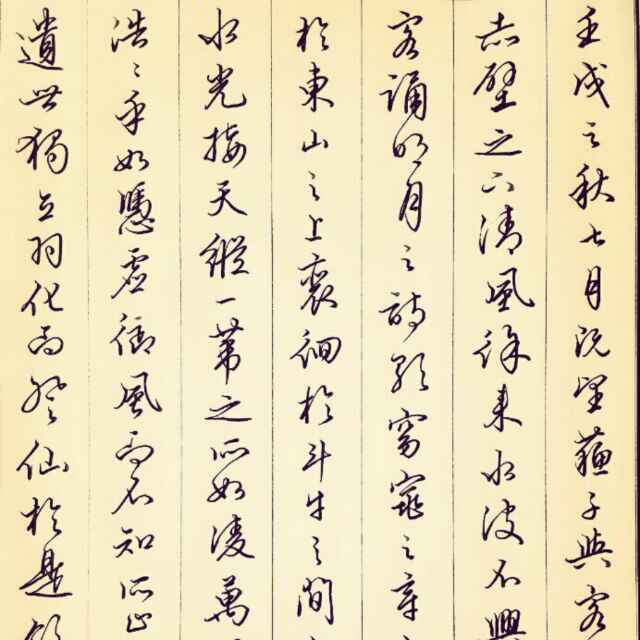 壬戌之秋七月既望蘇子與客
赤壁之下清風徐來水波不興
客誦明月之詩歌窈窕之章
於東山之上裵徊於斗牛之間
水光接天縱一葦之所如凌萬
浩〻乎如憑虛御風而不知所止
遺世獨立羽化而登仙於是飲